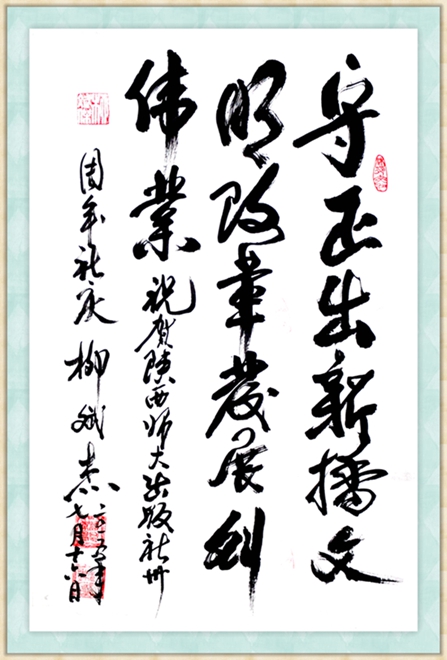 守正出新播文
明改革發展创
伟業 祝贺陕西师大出版社卅
周年社庆 柳斌杰
二〇一五年
七月十六日